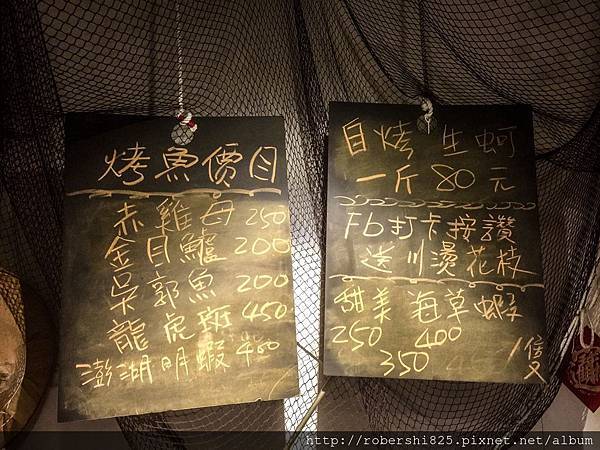 烤魚價目
赤雞母 250
金目鱸 200
吳郭魚 200
龍虎斑 450
澎湖明蝦 400
自烤生蚵
一斤80元
Fb打卡按讚
送川燙花枝
甜美海草蝦
250 350 400
1隻
http://robershi825.pixnet.net/album